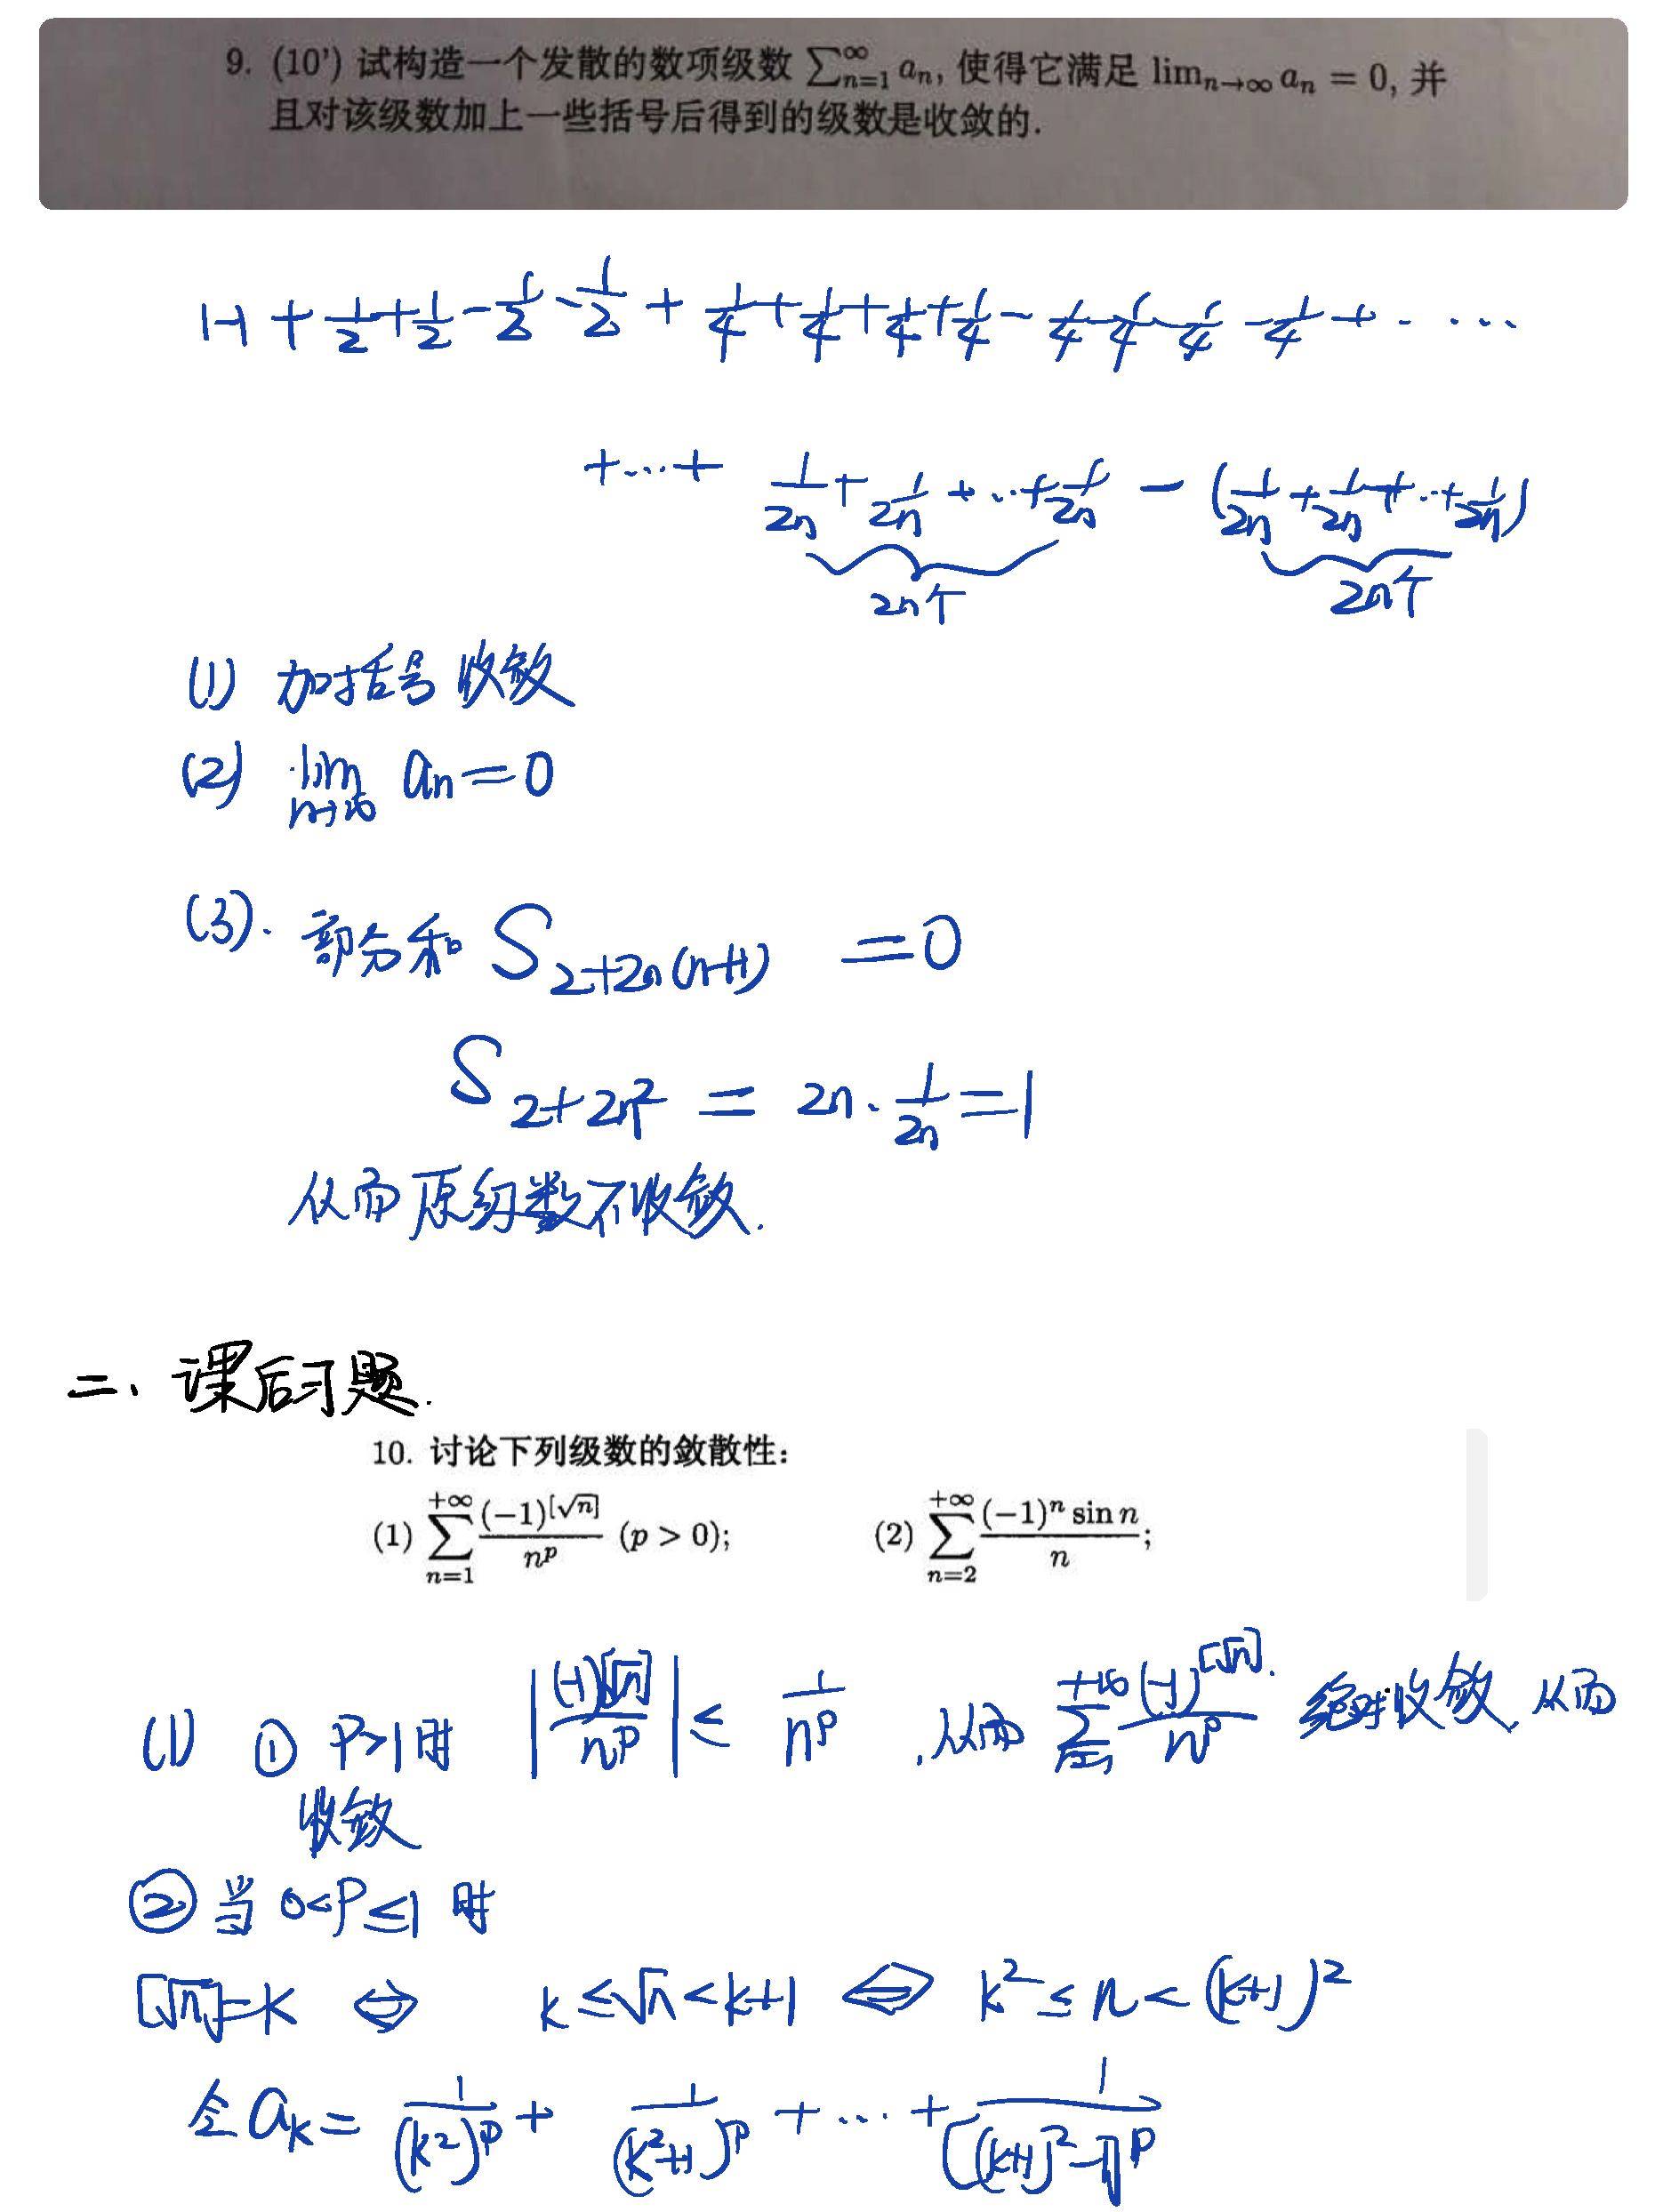 9. (10') 试构造一个发散的数项级数 ∑_{n=1}^{∞} a_n, 使得它满足 lim_{n→∞} a_n = 0, 并
且对该级数加上一些括号后得到的级数是收敛的.
1-1 + 1/2 + 1/2 - 1/2 - 1/2 + 1/4 + 1/4 + 1/4 + 1/4 - 1/4 - 1/4 - 1/4 - 1/4 + ·····
+ ··· + 1/2n + 1/2n + ··· + 1/2n - (1/2n + 1/2n + ··· + 1/2n)
2n个 2n个
(1) 加括号收敛
(2) lim_{n→∞} a_n = 0
(3). 部分和 S_{2+2n(n+1)} = 0
S_{2+2n²} = 2n · 1/2n = 1
从而原级数不收敛.
二、课后习题.
10. 讨论下列级数的敛散性:
(1) ∑_{n=1}^{+∞} (-1)^{[√n]}/n^p (p > 0); (2) ∑_{n=2}^{+∞} (-1)^n sin n/n;
(1) ① P>1时 |(-1)^{[√n]}/n^p| ≤ 1/n^p, 从而 ∑_{n=1}^{+∞} (-1)^{[√n]}/n^p 绝对收敛, 从而
收敛
② 当 0<P≤1 时
[√n]=k ⇔ k≤√n<k+1 ⇔ k²≤n<(k+1)²
令 a_k = 1/(k²)^p + 1/(k²+1)^p + ··· + 1/[(k+1)²-1]^p